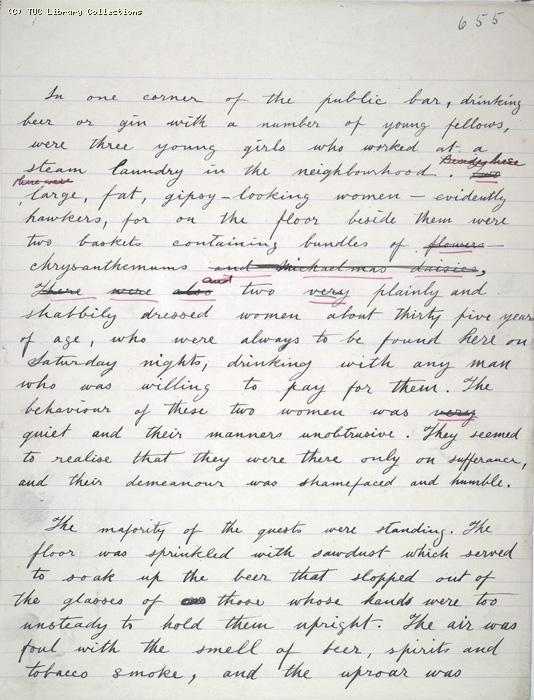 (C) TUC Library Collections
655
In one corner of the public bar, drinking
beer or gin with a number of young fellows,
were three young girls who worked at a
steam laundry in the neighbourhood. Besides these
there were
large, fat, gipsy-looking women — evidently
hawkers, for on the floor beside them were
two baskets containing bundles of flowers —
chrysanthemums and Michaelmas daisies,
There were also and two very plainly and
shabbily dressed women about thirty five years
of age, who were always to be found here on
Saturday nights, drinking with any man
who was willing to pay for them. The
behaviour of these two women was very
quiet and their manners unobtrusive. They seemed
to realise that they were there only on sufferance,
and their demeanour was shamefaced and humble.
The majority of the guests were standing. The
floor was sprinkled with sawdust which served
to soak up the beer that slopped out of
the glasses of those whose hands were too
unsteady to hold them upright. The air was
foul with the smell of beer, spirits and
tobacco smoke, and the uproar was